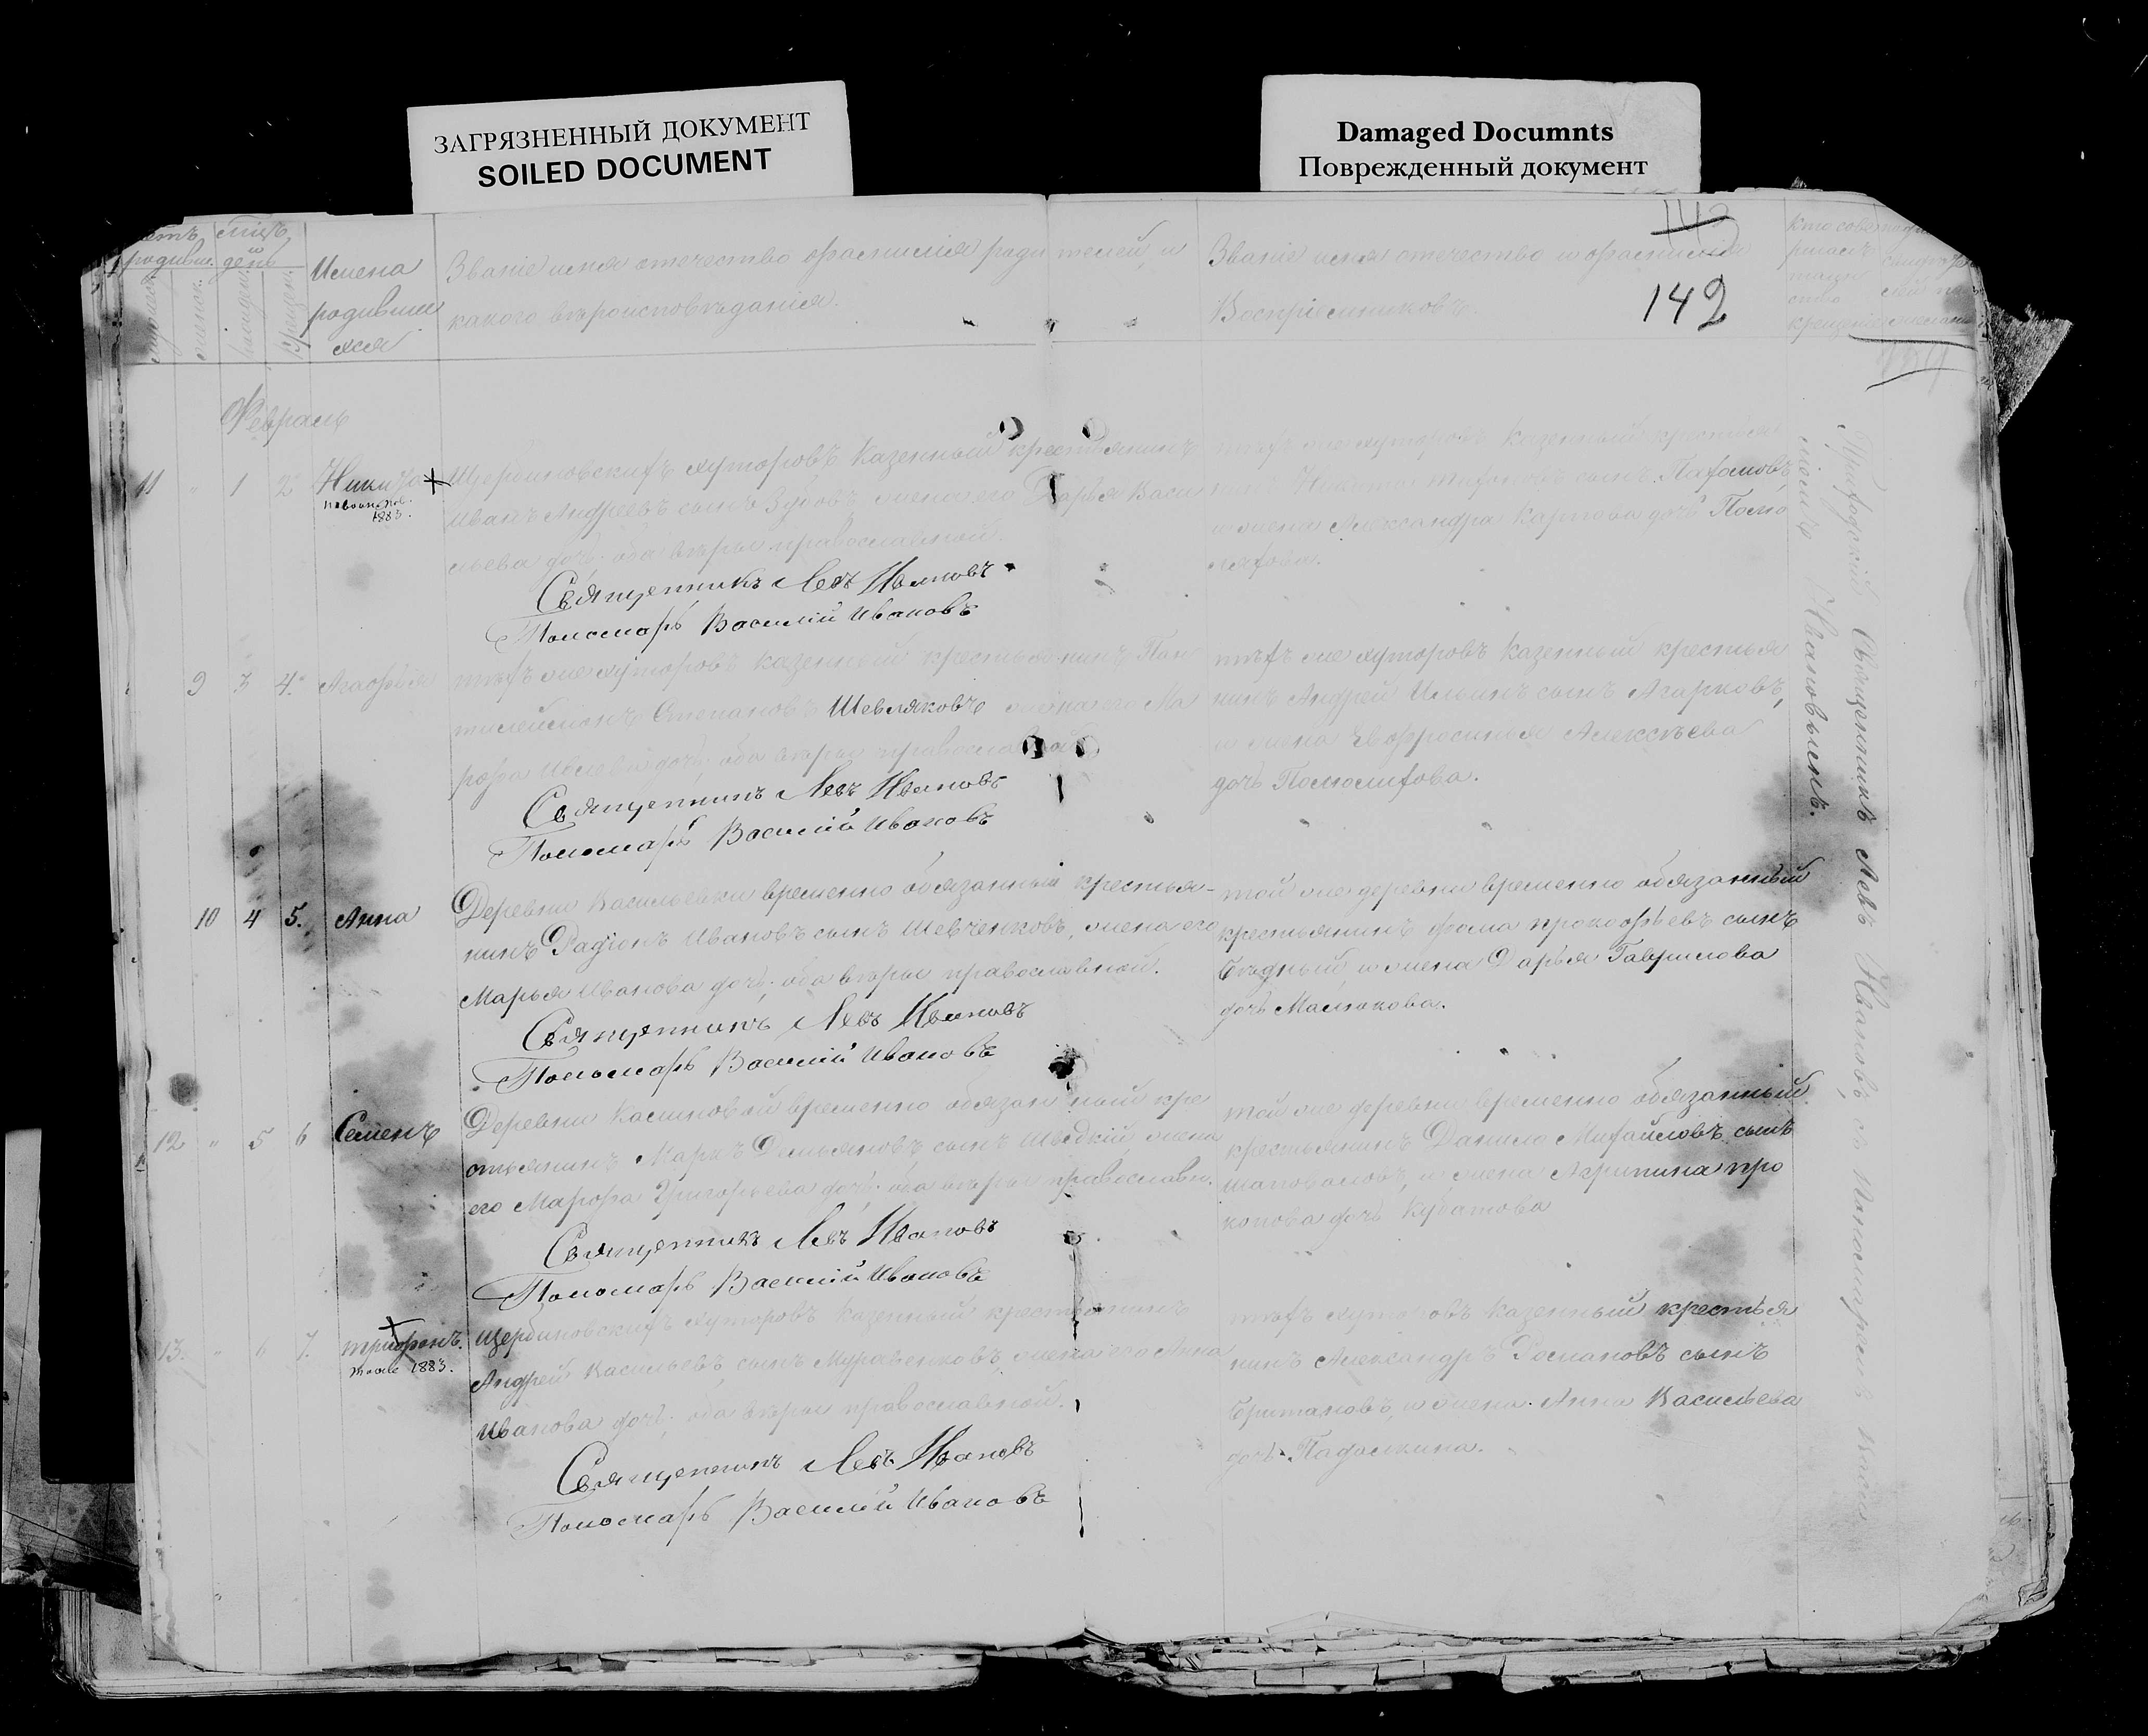 ЗАГРЯЗНЕННЫЙ ДОКУМЕНТ
SOILED DOCUMENT
Damaged Documnts
Поврежденный документ
142
Имена
родивши
хся
Званіе имя отчество фамилія родителей, и
какого вѣроисповѣданія.
Званіе имя отчество и фамилія
Воспріемниковъ.
Февраль
11 " 1 2 Никита
1883.
Щербиновскихъ хуторовъ казенный крестьянинъ
Иванъ Андреевъ сынъ жена его Дарья Васи
льева дочь; оба вѣры православной.
Священникъ Левъ Ивановъ
Пономарь Василій Ивановъ
тѣхъ же хуторовъ казенный крестья
нинъ Никита сынъ
и жена Александра Карпова дочь
9 3 4. Агафія
тѣхъ же хуторовъ казенный крестьянинъ Пан
телеймонъ Степановъ Шевляковъ жена его Ма
рфа дочь; оба вѣры православной
Священникъ Левъ Ивановъ
Пономарь Василій Ивановъ
тѣхъ же хуторовъ казенный крестья
нинъ Андрей Ильинъ сынъ Агарковъ,
и жена Евфросинья Алексѣева
дочь
10 4 5. Анна
Деревни Васильевки временно обязанный крестья-
нинъ Радіонъ Ивановъ сынъ Шевченковъ, жена его
Марья Иванова дочь; оба вѣры православной.
Священникъ Левъ Ивановъ
Пономарь Василій Ивановъ
той же деревни временно обязанный
крестьянинъ Фома Прокофьевъ сынъ
Бѣдный, и жена Дарья Гаврилова
дочь Малюкова.
12 " 5 6 Семенъ
Деревни Калиновой временно обязанный кре
стьянинъ Маркъ Демьяновъ сынъ Швыдкій, жена
его Марфа Григорьева дочь; оба вѣры православн.
Священникъ Левъ Ивановъ
Пономарь Василій Ивановъ
той же деревни временно обязанный
крестьянинъ Данило Михайловъ сынъ
Шаповаловъ, и жена Агрипина Про
копова дочь
13. " 6 7. Трифонъ.
1883.
Щербиновскихъ хуторовъ казенный крестьянинъ
Андрей Васильевъ сынъ Муравенковъ, жена его Анна
Иванова дочь; оба вѣры православной.
Священникъ Левъ Ивановъ
Пономарь Василій Ивановъ
тѣхъ хуторовъ казенный крестья
нинъ Александръ Романовъ сынъ
Британовъ, и жена Анна Васильева
дочь Падалкина.
Приходскій Священникъ Левъ Ивановъ, съ Пономаремъ Васи
ліемъ Ивановымъ.